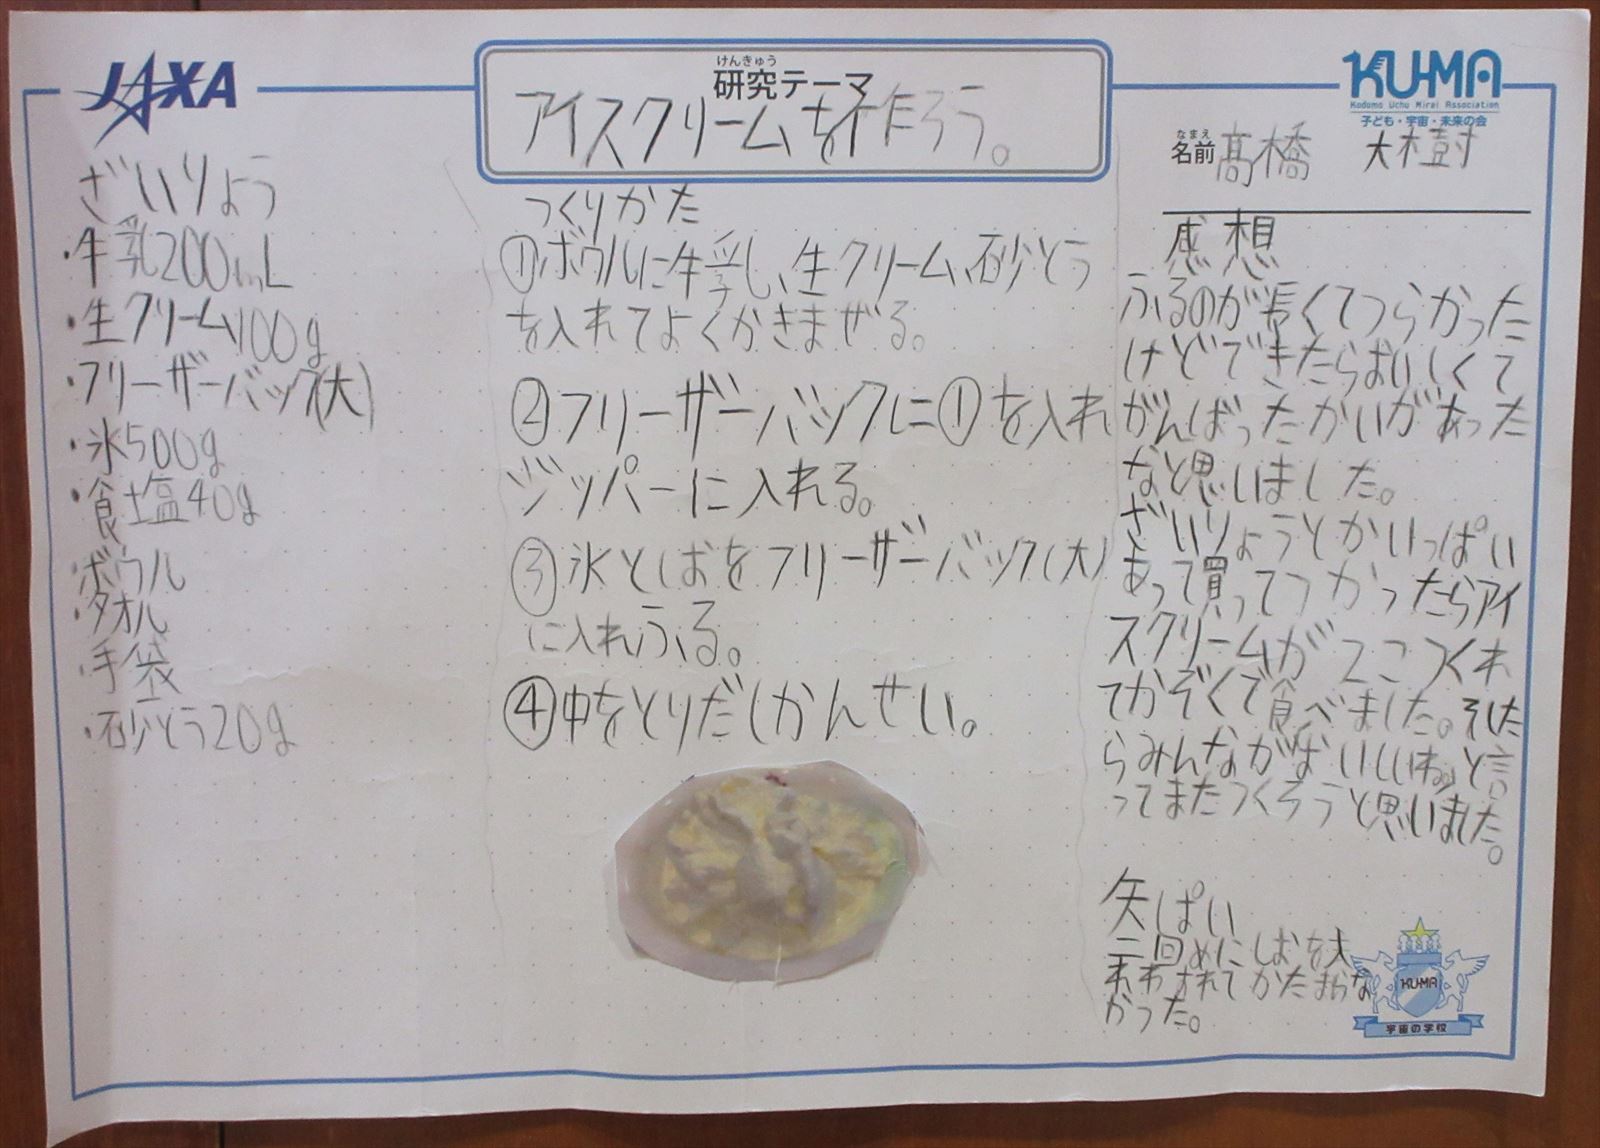 JAXA
けんきゅう
研究テーマ
アイスクリームを作ろう。
KU-MA
Kodomo Uchu Mirai Association
子ども・宇宙・未来の会
なまえ
名前 髙橋 大樹
ざいりょう
・牛乳200mL
・生クリーム100g
・フリーザーバック(大)
・氷500g
・食塩40g
・ボウル
・タオル
・手袋
・砂とう20g
つくりかた
①ボウルに牛乳し、生クリーム、砂とう
を入れてよくかきまぜる。
②フリーザーバックに①を入れ
ジッパーに入れる。
③氷としおをフリーザーバック(大)
に入れふる。
④中をとりだしかんせい。
感想
ふるのが長くてつらかった
けどできたらおいしくて
がんばったかいがあった
なと思いました。
ざいりょうとかいっぱい
あって買ってつかったらアイ
スクリームが2こつくれ
てかぞくで食べました。そした
らみんなが「おいしいね。」と言
ってまたつくろうと思いました。
矢ぱい
二回めにしおを入
れわすれてかたまらな
かった。
KU-MA
宇宙の学校